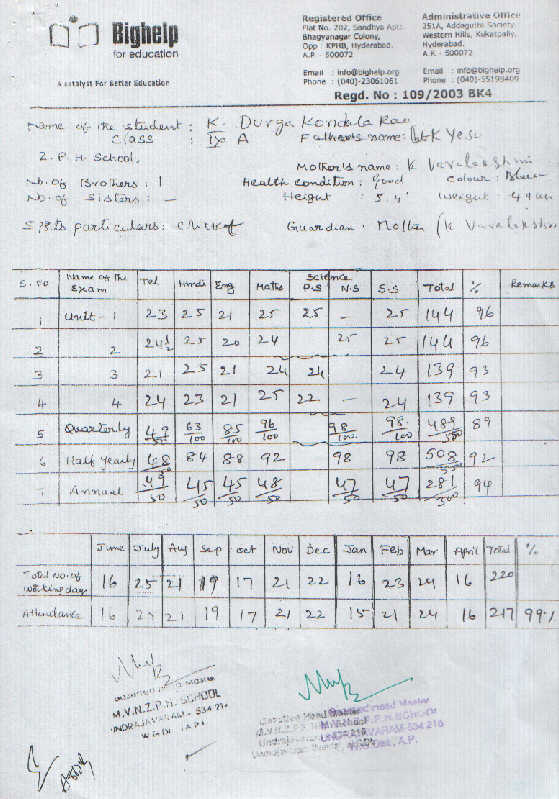 Bighelp
for education
A catalyst For Better Education
Registered Office
Flat No. 202, Sandhya Apts.
Bhagyanagar Colony,
Opp : KPHB, Hyderabad.
A.P - 500072
Email : info@bighelp.org
Phone : (040)-23061061
Administrative Office
251A, Addagutta Society,
Western Hills, Kukatpally,
Hyderabad.
A.P. - 500072
Email : info@bighelp.org
Phone : (040)-55199409
Regd. No : 109/2003 BK4
Name of the student : K. Durga Kondala Rao
Class : IX A Father's name: K Yesu
Z. P. H. School, Mother's name : K Varalakshmi
No. of Brothers : 1 Health condition : Good Colour :
No. of Sisters : — Height : 5.4" Weight
Sports particulars: Guardian . Mother (K Varalakshmi
S. No Name of the Exam Tel Hindi Eng Maths Science P.S N.S S.S Total % Remarks
1 Unit - 1 23 25 21 25 25 - 25 144 96
2 2 24½ 25 20 24 25 25 144 96
3 3 21 25 21 24 24 24 139 93
4 4 24 23 21 25 22 — 24 139 93
5 Quarterly 63/100 85/100 96/100 98/100 98/100 89
6 Half Yearly 84 88 92 98 98 508 92
7 Annual 49/50 45/50 45/50 48/50 47/50 47/50 281/300 94
June July Aug Sep Oct Nov Dec Jan Feb Mar April Total %
Total No. of working days 16 25 21 19 17 21 22 16 23 24 16 220
Attendance 16 25 21 19 17 21 22 15 21 24 16 217 99%
M.V.N.Z.P.H. SCHOOL
UNDRAJAVARAM - 534 216
W.G.Dt. (A.P.)
Head Master
UNDRAJAVARAM-534 216
W.G.Dist., A.P.